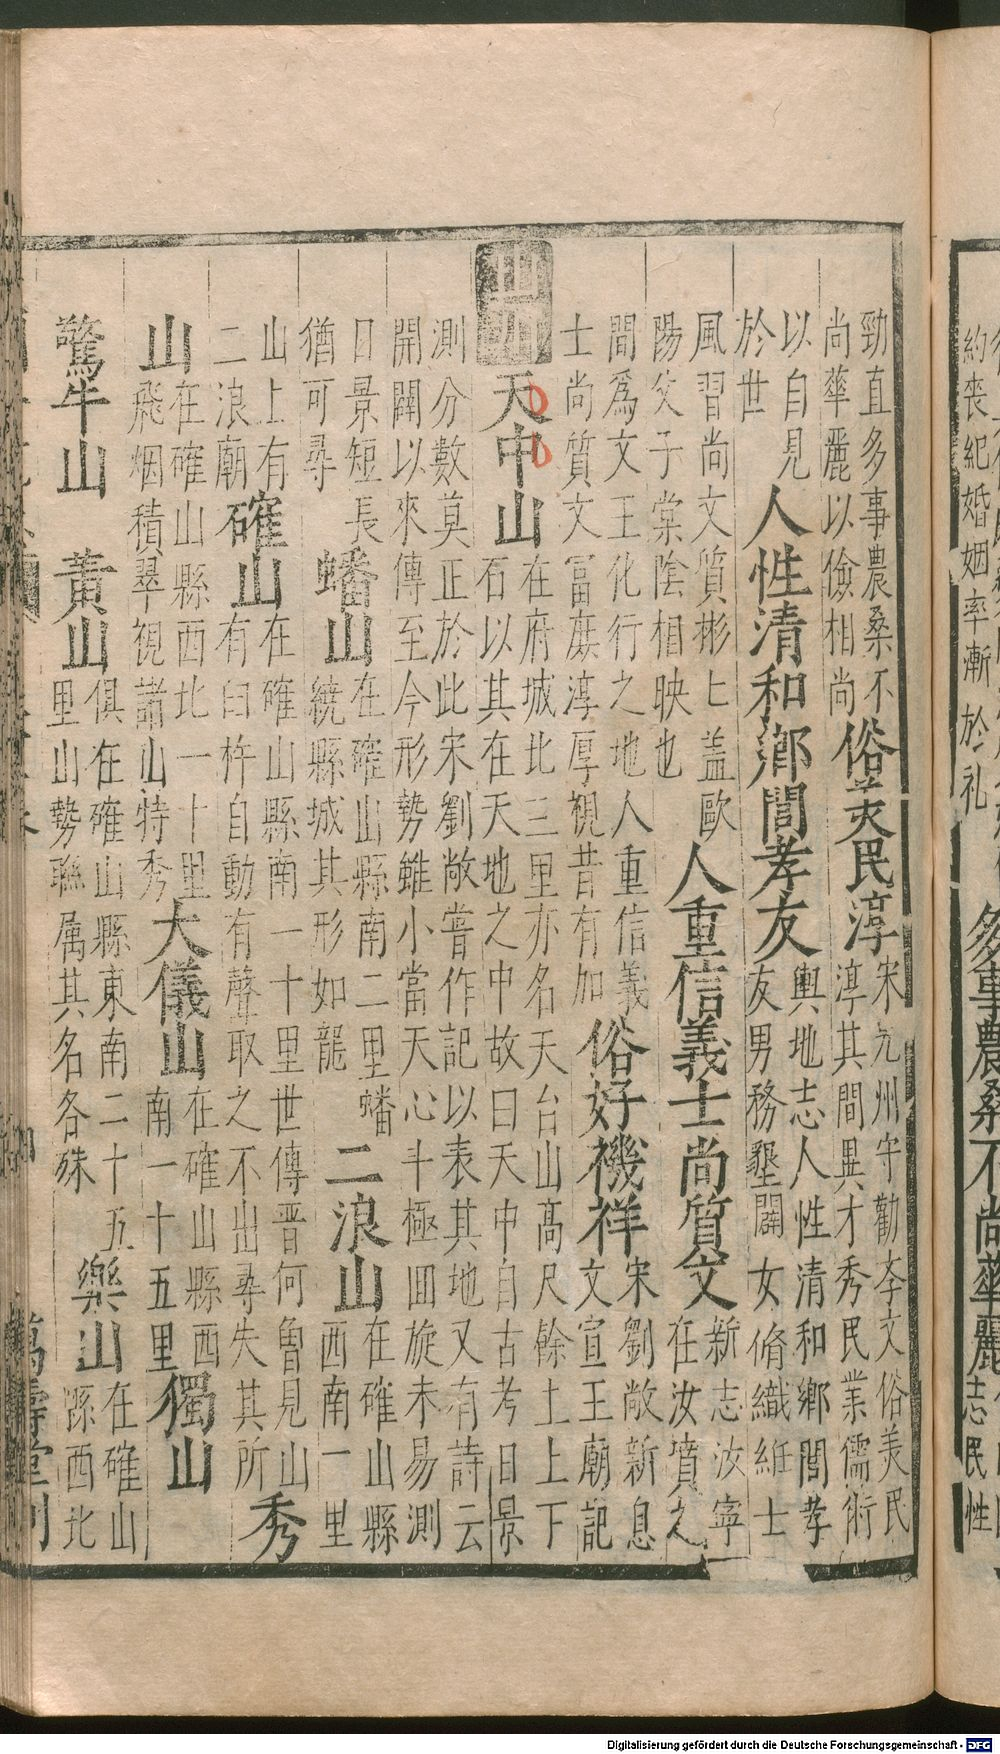 多事農桑不尚華麗
志民性
約喪紀婚姻率漸於礼
勁直多事農桑不
尚華麗以儉相尚
俗美民淳
宋九州守勸李文俗美民
淳其間異才秀民業儒術
以自見
於世
人性清和鄉閭孝友
輿地志人性清和鄉閭孝
友男務墾闢女脩織絍士
風習尚文質彬匕蓋歐
陽父子棠陰相映也
人重信義士尚質文
新志汝寧
在汝墳之
間爲文王化行之地人重信義
士尚質文冨庶淳厚視昔有加
俗好禨祥
宋劉敞新息
文宣王廟記
山川
天中山
在府城北三里亦名天台山高尺餘土上下
石以其在天地之中故曰天中自古考日景
測分數莫正於此宋劉敞嘗作記以表其地又有詩云
開闢以來傳至今形勢雖小當天心斗極囬旋未易測
日景短長
猶可尋
蟠山
在確山縣南二里蟠
繞縣城其形如龍
二浪山
在確山縣
西南一里
山上有
二浪廟
確山
在確山縣南一十里世傳晋何魯見山
有臼杵自動有聲取之不出尋失其所
秀
山
在確山縣西北一十里
飛烟積翠視諸山特秀
大儀山
在確山縣西
南一十五里
獨山
驚牛山
黃山
俱在確山縣東南二十五
里山勢聯属其名各殊
樂山
在確山
縣西北
萬壽堂刊
Digitalisierung gefördert durch die Deutsche Forschungsgemeinschaft - DFG